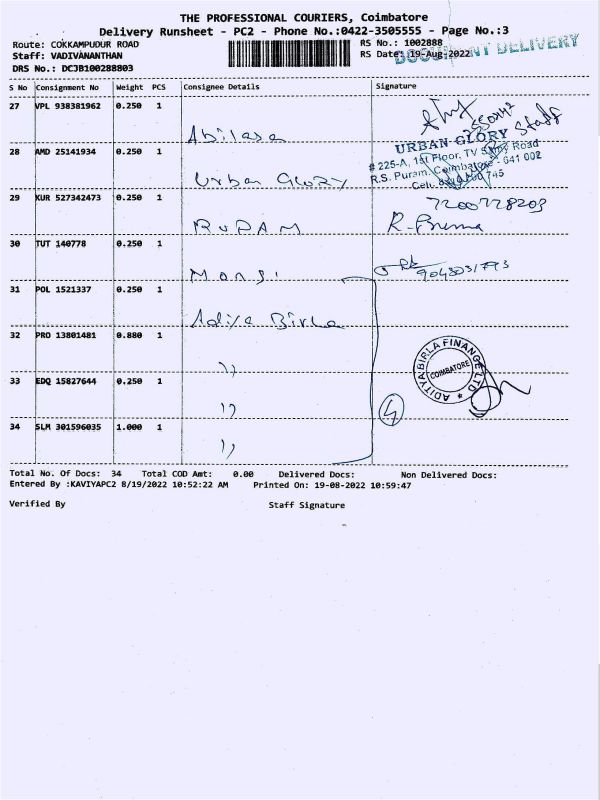 THE PROFESSIONAL COURIERS, Coimbatore
Delivery Runsheet - PC2 - Phone No.:0422-3505555 - Page No.:3
Route: COKKAMPUDUR ROAD
Staff: VADIVANANTHAN
DRS No.: DCJB100288803
RS No.: 1002888
RS Date: 19-Aug-2022
DOCUMENT DELIVERY
S No Consignment No Weight PCS Consignee Details Signature
27 VPL 938381962 0.250 1 Abilasa
Staff
28 AMD 25141934 0.250 1 Urban Glory
URBAN GLORY
# 225-A, 1st Floor, TV Samy Road
R.S. Puram, Coimbatore - 641 002
29 KUR 527342473 0.250 1 RUPAM
7200778203
R. Prema
30 TUT 140778 0.250 1 Mansi
9043031793
31 POL 1521337 0.250 1 Adiya Birla
32 PRO 13801481 0.880 1 ))
ADITYA BIRLA FINANCE LTD
COIMBATORE
33 EDQ 15827644 0.250 1 ))
34 SLM 301596035 1.000 1 ))
Total No. Of Docs: 34 Total COD Amt: 0.00 Delivered Docs: Non Delivered Docs:
Entered By :KAVIYAPC2 8/19/2022 10:52:22 AM Printed On: 19-08-2022 10:59:47
Verified By Staff Signature